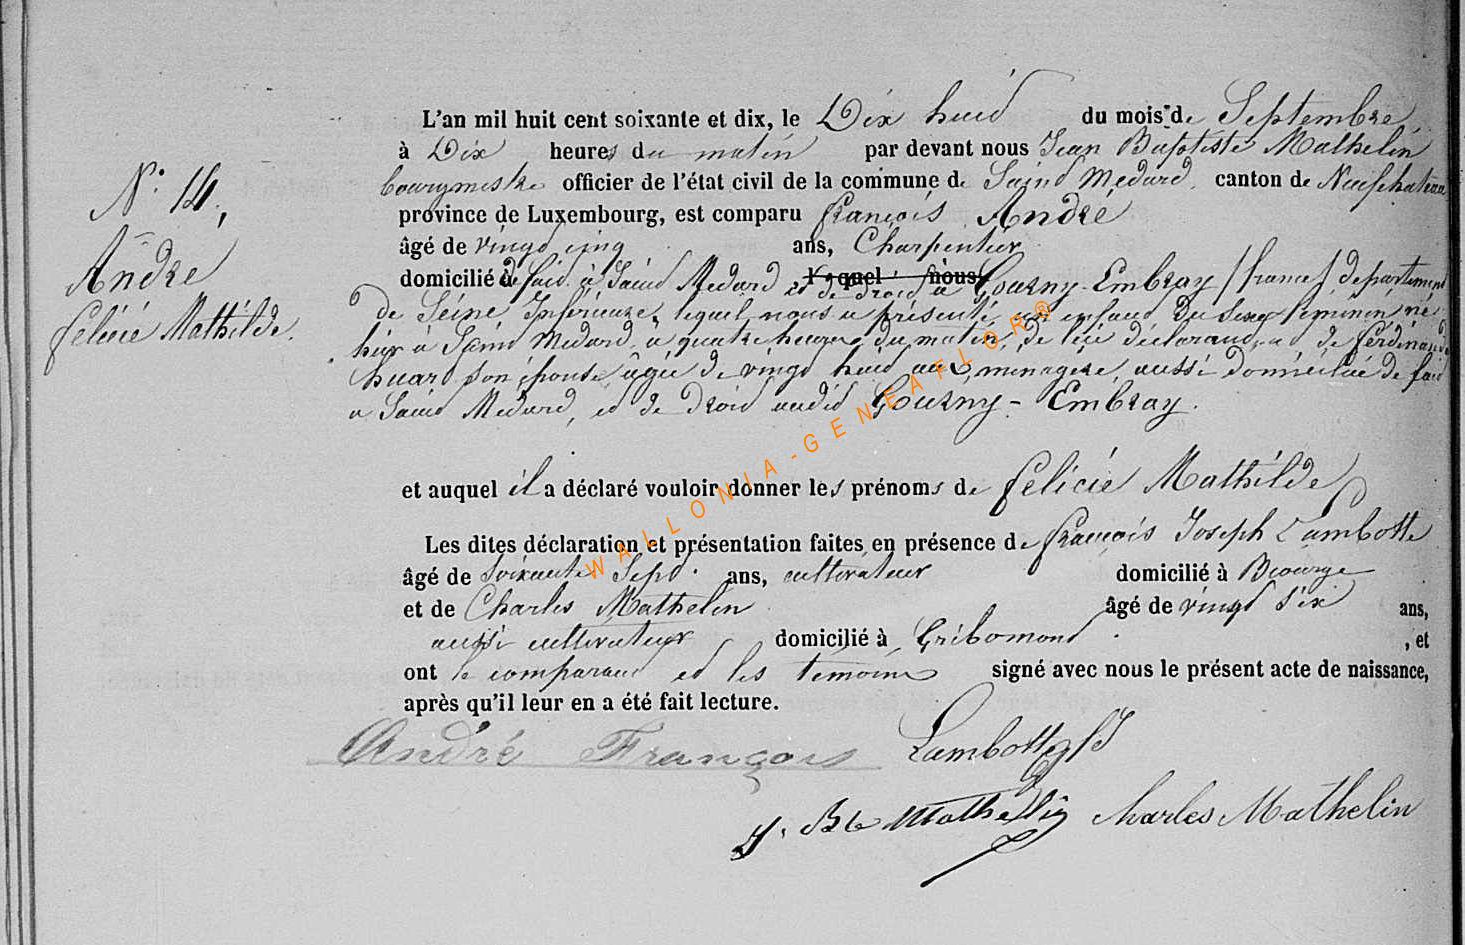 N° 14,
André
Felicié Mathilde
L'an mil huit cent soixante et dix, le Dix huit du mois de Septembre
à Dix heures du matin par devant nous Jean Baptiste Mathelin
bourgmestre officier de l'état civil de la commune de Saint Medard, canton de Neufchateau
province de Luxembourg, est comparu françois André
âgé de vingt cinq ans, Charpentier
domicilié de fait à Saint Medard lequel nous et de droit a Gourny-Embray (france) departement
de Séine Inférieure, lequel nous a présenté un enfant du sexe féminin né
hier à Saint Medard, à quatre heures du matin, de lui déclarant, et de férdinande
huard son épouse, âgée de vingt huit ans, menagére, aussi domiciliée de fait
a Saint Medard, et de droit audit Gourny-Embray.
et auquel il a déclaré vouloir donner les prénoms de felicié Mathilde
Les dites déclaration et présentation faites en présence de françois Joseph Lambotte
âgé de soixante Sept. ans, cultivateur domicilié à Biourge
et de Charles Mathelin âgé de vingt six ans,
aussi cultivateur domicilié à Gribomont , et
ont le comparant et les témoins signé avec nous le présent acte de naissance,
après qu'il leur en a été fait lecture.
André François Lambotte fJ
J. Bte Mathelin Charles Mathelin
WALLONIA-GENEAFLOR®